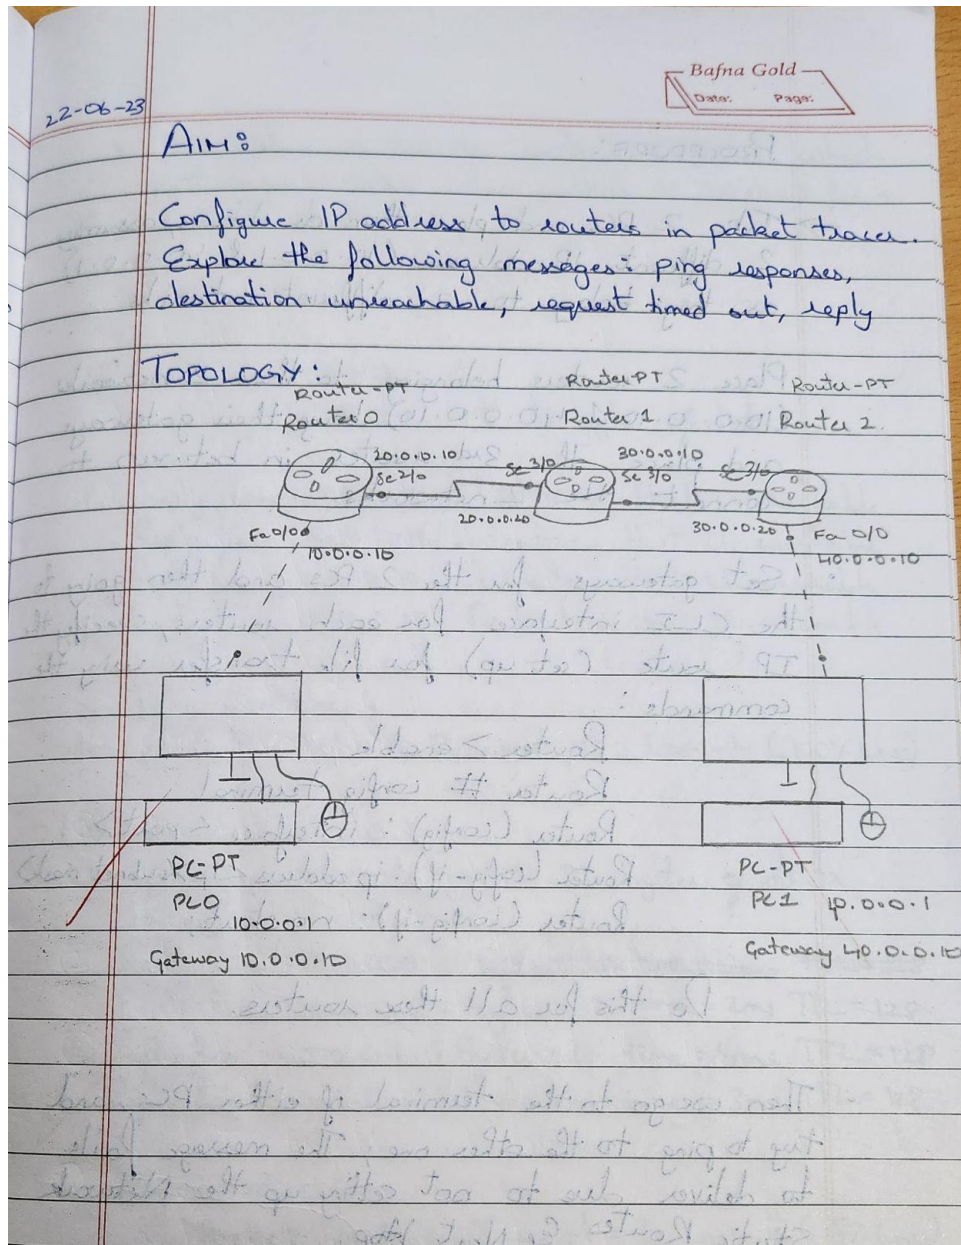 Bafna Gold
Date: Page:
22-06-23
AIM:
Configure IP address to routers in packet tracer.
Explore the following messages: ping responses,
destination unreachable, request timed out, reply
TOPOLOGY:
Router-PT Router-PT Router-PT
Router 0 Router 1 Router 2.
20.0.0.10 30.0.0.10
Se 2/0 Se 3/0 Se 3/0 Se 3/0
20.0.0.20 30.0.0.20
Fa 0/0 Fa 0/0
10.0.0.10 40.0.0.10
PC-PT PC-PT
PC0 PC1
10.0.0.1 40.0.0.1
Gateway 10.0.0.10 Gateway 40.0.0.10